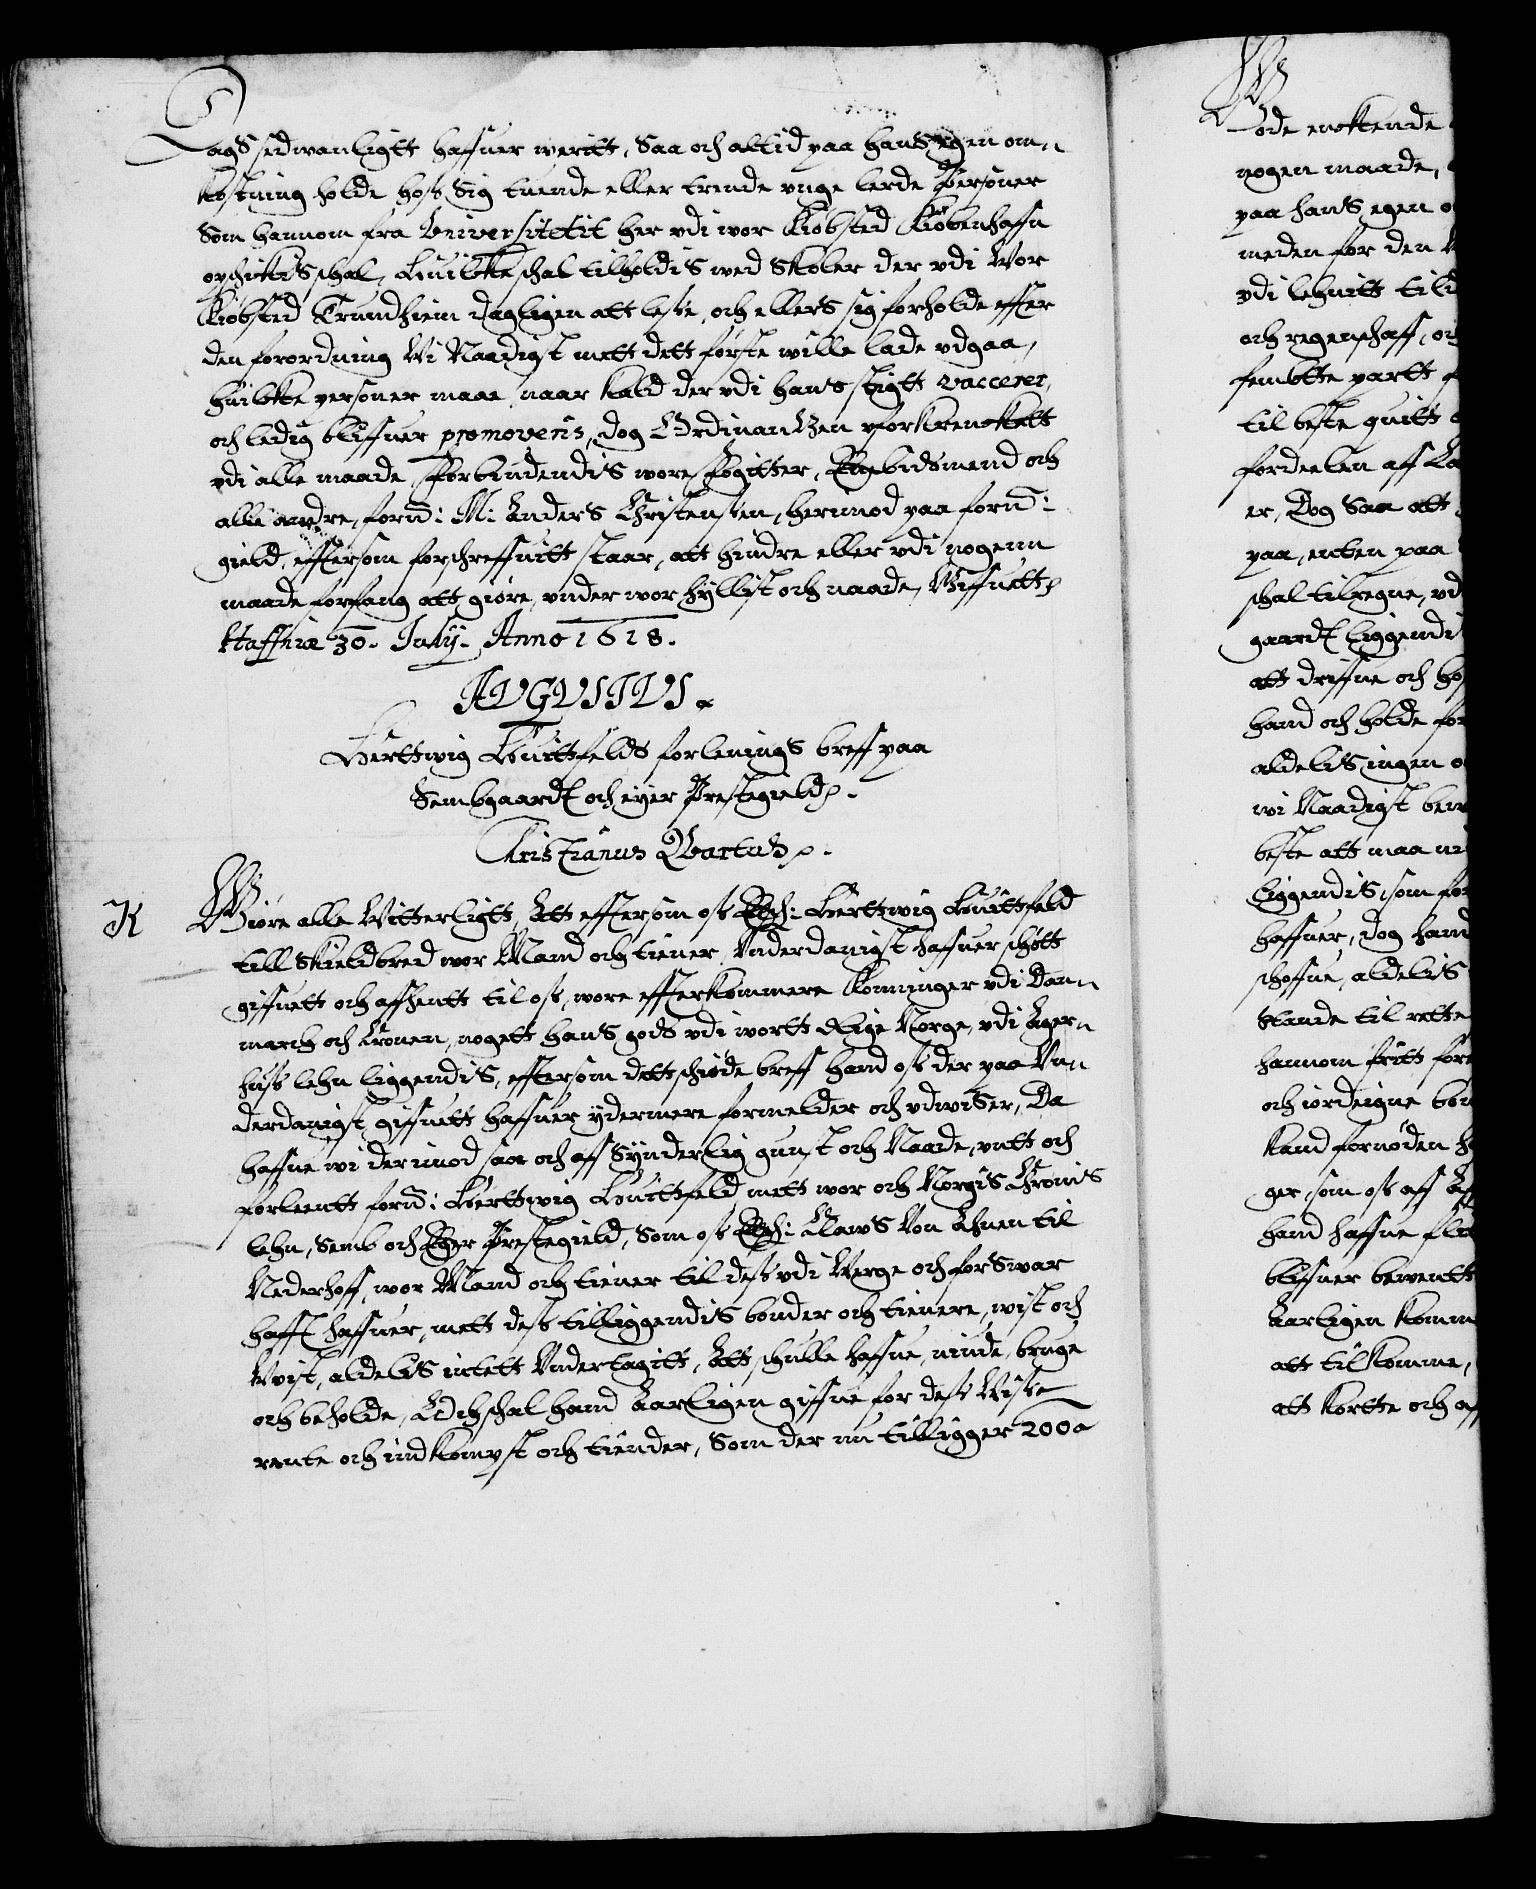 Dags sedwanligtt haffuer weritt, Saa och altid paa hans egen om-
kostning holde hoss Sig tuende eller trende vnge lerde Personer
Som hannom fra Universitetit her vdi wor Kiøbsted Kiøbenhaffn
opschickis schal, Huilcke schal tilholdis wed Skoler der vdi Wor
Kiøbsted Trundhiem dagligen att lesse, och ellers sig forholde effter
den forordning Wi Naadigst mett dett første wille lade vdgaa,
huilcke personer maae, naar Kald der vdi hans stigtt vaccerer,
och ledig bliffuer promoveris, dog Ordinantzen vforkrencket
vdi alle maade, Forbiudendis wore Fogitter, Embidsmend och
alle andre, fornd: M: Anders Christensen, herimod paa fornd:
gield, effttersom forschreffuitt staar, att hindre eller vdi nogenn
maade forfang att giøre, vnder wor hyllist och naade, Giffuett
Haffniæ 30. July. Anno 1618.
AUGUSTUS.
Herttwig Huittfelds forlenings breff paa
Sembgaard och eyer Prestegield.
Christianus Qvartus.
K
Giøre alle Witterligtt, Att efftersom oss Elsch: Herttwig Huittfeld
till Skieldbred wor Mand och tiener, Vnderdanigst haffuer schøtt
giffuett och affhentt til oss, wore effterkommere Konninger vdi Dan-
march och Cronen, nogett hans gods vdi wortt Rige Norge, vdi Ager-
huss lehn liggendis, efftersom dett schiøde breff hand oss der paa Vn-
derdanigst giffuett haffuer ydermere formelder och vdwiser, Da
haffue wi derimod saa och aff Synderlig gunst och Naade, vntt och
forleentt fornd: Herttwig Huittfeld mett wor och Norgis Cronis
lehn, Semb och Eger Prestegield, Som oss Elsch: Claws Von Ahnen til
Nederhoff, wor Mand och tiener til dess vdi Werge och forswar
hafft haffuer, mett dess tilliggendis bønder och tienere, wist och
Vvist, aldelis intett Vndertagitt, Att schulle haffue, niude, bruge
och beholde, Och schal hand Aarligen giffue for dess Wisse
rente och indkompst och tiender, Som der nu tilligger 200
ode enckende
nogen maade,
paa hans egen
meden for den
vdi lehnitt
och regenschaff,
fembtte partt
til beste quitt
fordeelen aff
er, Dog Saa att
paa, enten paa
schal tilregne,
gaard liggendi
att driffue och
hand och holde
aldelis ingen
wi Naadigst
beste att maa
liggendis, som
haffuer, dog
schoffue, aldelis
stande til rette
hannom fritt
och iordeigne
kand fornøden
ger, som oss aff
hand haffue
bliffuer bewentt
Aarligen
att tilkomme,
att kortte och